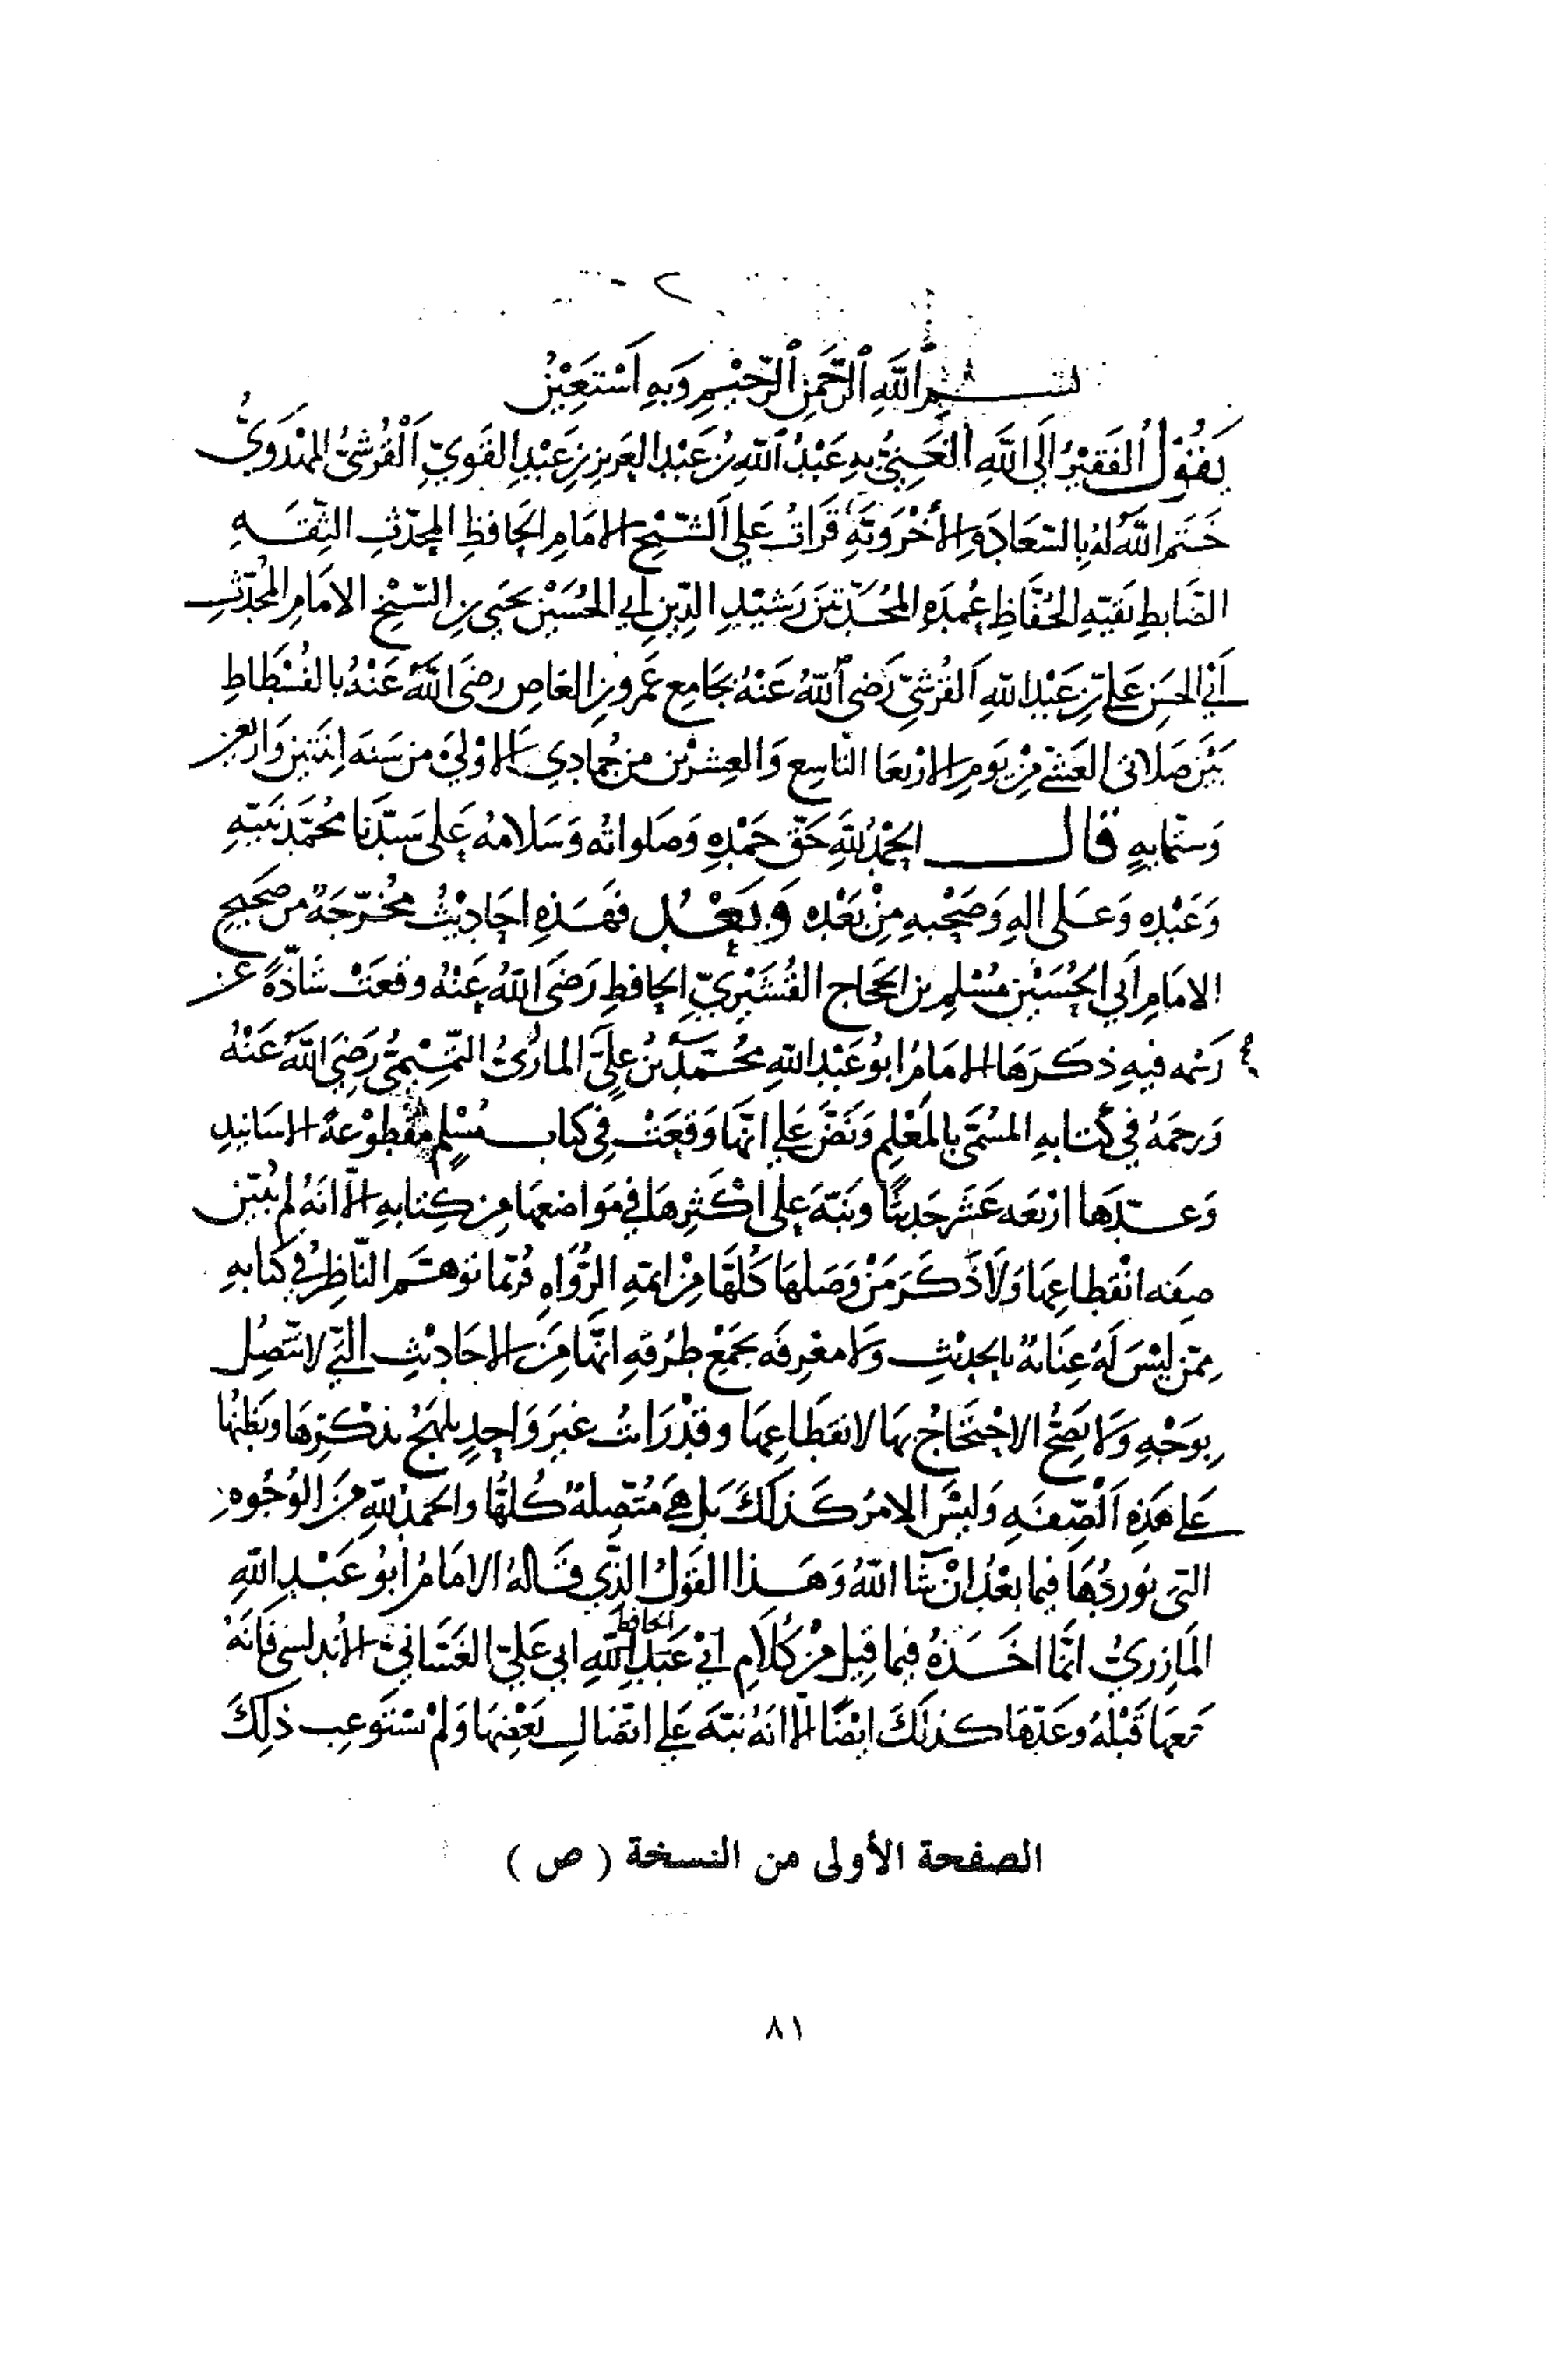 بسم اللَّهِ الرَّحْمَنِ الرَّحِيْمِ وَبِهِ اَسْتَعِيْنُ
يَقُوْلُ الفَقِيْرُ اِلَى اللَّهِ الغَنِيُّ بِهِ عَبْدُ اللَّهِ بْنُ عَبْدِ العَزِيزِ بْنِ عَبْدِ القَوِيِّ القُرَشِيُّ المَهْدَوِيُّ
خَتَمَ اللَّهُ لَهُ بِالسَّعَادَةِ الأُخْرَوِيَّةِ قَرَاتُ عَلَى الشَّيْخِ الامَامِ الحَافِظِ المُحَدِّثِ الثِّقَهِ
الضَّابِطِ بَقيّهِ الحُفَّاظِ عُمدَهِ المُحَدِّثينَ رَشيْدِ الدِّينِ اَبي الحُسَيْنِ يحيَى بنِ الشَّيْخِ الامَامِ المُحَدِّثِ
اَبي الحسَنِ عَليّ بْنِ عَبْدِ اللهِ القُرَشِيِّ رَضِي اللَّهُ عَنْهُ بجَامِع عَمرِو بنِ العَاصِ رضِيَ اللَّهُ عَنْهُ بِالفُسْطَاطِ
بَيْنَ صَلاتي العَشيّ مِنْ يَومِ الارْبِعَا التّاسِعِ وَالعِشرْين من جُمادي الاوْلَى من سَنه اثنَتينِ وَاربعين
وَستّمايه قال الحَمْدُ للَّهِ حَقّ حَمْدِهِ وَصَلواته وَسَلامهُ عَلى سَيّدنَا محُمَّدٍ نَبيّهِ
وَعَبْدِهِ وَعَلى الهِ وَصَحْبهِ مِنْ بَعْدِه وَبَعْدُ فهَذِهِ احَادِيْثُ مُخَرَّجَةٌ من صَحِيحِ
الامَامِ اَبي الحُسَيْنِ مُسْلِمِ بن الحَجّاجِ القُشَيْرِيِّ الحافظِ رَضَى اللَّهُ عَنْهُ وقَعَتْ شَاذّةً عن
رَسْمه فيهِ ذكَرَهَا الامَامُ ابوُ عَبْدِ اللهِ محُمَّد بْنُ عَلِيّ المازرىُّ التَّميْمِيُّ رَضِيَ اللَّهُ عَنْهُ
وَرحمَهُ في كتابهِ المُسَمَّى بالمُعْلِم وَنَصَّ عَلى انّهَا وَقَعَتْ في كتاب مُسْلِمٍ مَقطوْعَةَ الاسَانيدِ
وَعدّهَا اَرْبَعه عَشَر حَديثًا وَنَبّهَ عَلى اكْثرِهَا في مَواضعِهَا مِن كِتابهِ الّا انّهُ لم يُبَيّن
صِفَه انْقِطاعِهَا وَلَا ذَكَرَ مَنْ وَصَلهَا كُلّهَا مِنْ ايمّهِ الرُّوَاهِ فرُبمّا تَوهّمَ النّاظِرُ في كتابهِ
مِمّن ليْسَ لَهُ عِنَايَة بالحديْثِ وَلا معْرِفَه بجَمْعِ طرُقهِ انّهَا مِنَ الاحَاديْثِ التّي لا تَتّصِل
بِوَجْهٍ وَلَا يَصِحُّ الاحْتِجَاجُ بهَا لانقطَاعِهَا وقَدْ رَاتُ غيرَ وَاحِدٍ يلهَجُ بذكْرِهَا ويَظنّهَا
عَلى هَذِهِ الصِّفَهِ وَليْسَ الامرُ كَذلكَ بَل هيَ مُتّصِلةٌ كُلّهَا والحَمْدُ للَّهِ مِنَ الوُجُوهِ
التي نوردُهَا فيما بَعْدُ انْ شَا اللهُ وَهَذا القَوْلُ الذِّي قَالهُ الامَامُ اَبوُ عَبْدِ اللَّهِ
المَازِرِيُّ انمّا اخَذهُ فيما قِيلَ مِنْ كَلَامِ اَبيْ عَبْدِ اللَّهِ الحافظ ابي عَليّ الغَسّانيّ الانْدلسى فَانّهُ
جمعَهَا قَبْلهُ وعَدّهَا كذلكَ ايْضًا الّا انّهُ نَبّهَ عَلى اتصَالِ بَعْضِهَا وَلمْ يَسْتَوعِب ذلِكَ
الصفحة الأولى من النسخة ( ص )
٨١